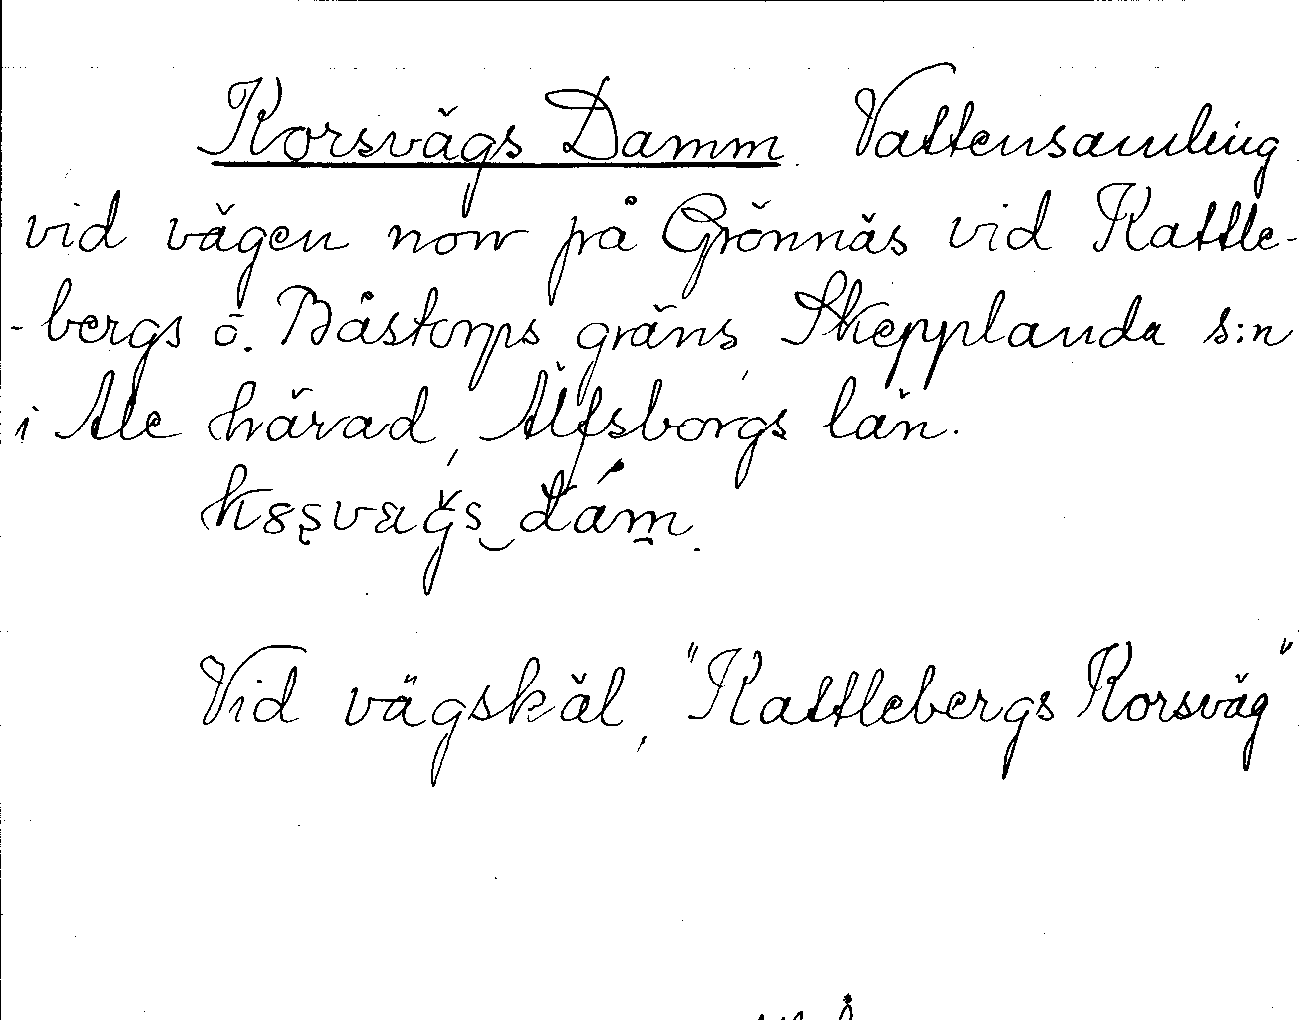 Korsvägs Damm. Vattensamling
vid vägen norr på Grönnäs vid Kattle-
-bergs o. Båstorps gräns, Skepplanda s:n
i Ale härad, Älfsborgs län.
Vid vägskäl, "Kattlebergs Korsväg"